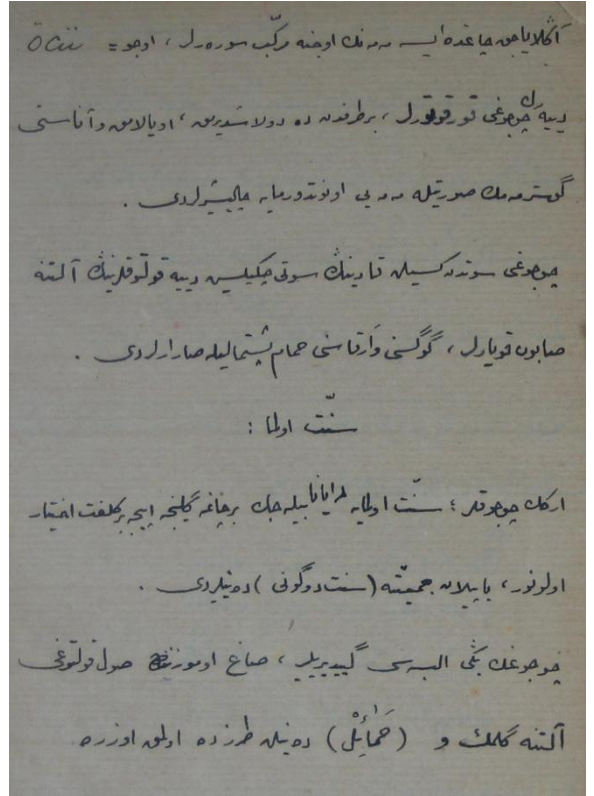 آڭلایاجق چاغده ایسه ممه‌نك اوجنه مركب سوره‌رلر، اوجو =
دییه‌رك چوجوغی قورقوتورلر، بر طرفدن ده دولاشدیرمق، اویالامق و آناسنی
گوسترمه‌مك صورتیله ممه‌یی اونوتدورمایه چالیشیرلردی .
چوجوغی سوتدن كسیلن قادینڭ سوتی چكیلسین دییه قولتوقلرینڭ آلتنه
صابون قویارلر، گوگسنی و آرقاسنی حمام پشتمالیله صارارلردی .
سنّت اولما :
اركك چوجوقلر ؛ سنّت اولمایه دایانابیله‌جك بر چاغه گلنجه ایجه بر كلفت اختیار
اولونور، یاپیلان جمعیّته (سنت دوگونی) دەنیلیردی .
چوجوغڭ یڭی البسه‌سی گییدیریلیر، صاغ اوموزندن صول قولتوغی
آلتنه گلمك و (حَمَائِل) دەنیلن طرزده اولمق اوزره